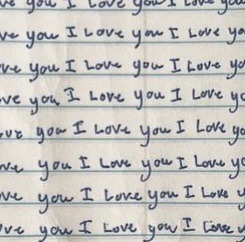 you I Love you I Love you
ve you I Love you I Love yo
ve you I Love you I Love yo
ve you I Love you I Love yo
ove you I Love you I Love yo
ve you I Love you I Love yo
ve you I Love you I Love y
ove you I Love you I Love y